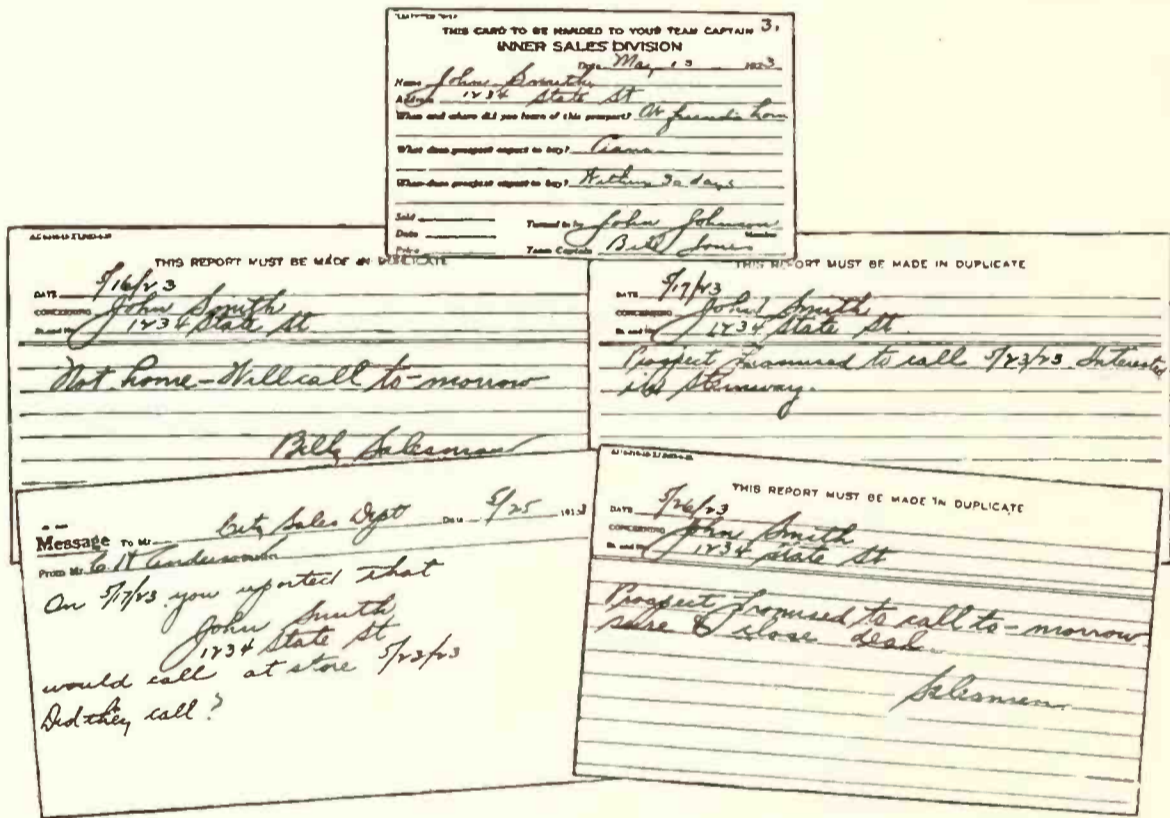 THIS CARD TO BE HANDED TO YOUR TEAM CAPTAIN 3.
INNER SALES DIVISION
Date May 15 1923
Name John Smith
Address 1234 State St
When and where did you learn of this prospect? At friend's hom
What does prospect expect to buy? Piano
When does prospect expect to buy? Within 30 days
Sold
Turned in by John Johnson
Member
Date
Price
Team Captain Bill Jones
THIS REPORT MUST BE MADE IN DUPLICATE
DATE 5/16/23
CONCERNING John Smith
St. and No. 1234 State St
Not home - Will call to-morrow
Billy Salesman
THIS REPORT MUST BE MADE IN DUPLICATE
DATE 5/17/23
CONCERNING John Smith
St. and No. 1234 State St.
Prospect promised to call 5/23/23. Interested
in Steinway.
Message To Mr. City Sales Dept Date 5/25 192
From Mr. C H Anderson
On 5/17/23 you reported that
John Smith
1234 State St
would call at store 5/23/23
Did they call?
THIS REPORT MUST BE MADE IN DUPLICATE
DATE 5/26/23
CONCERNING John Smith
St. and No. 1234 State St
Prospect promised to call to-morrow
sure & close deal.
Salesman